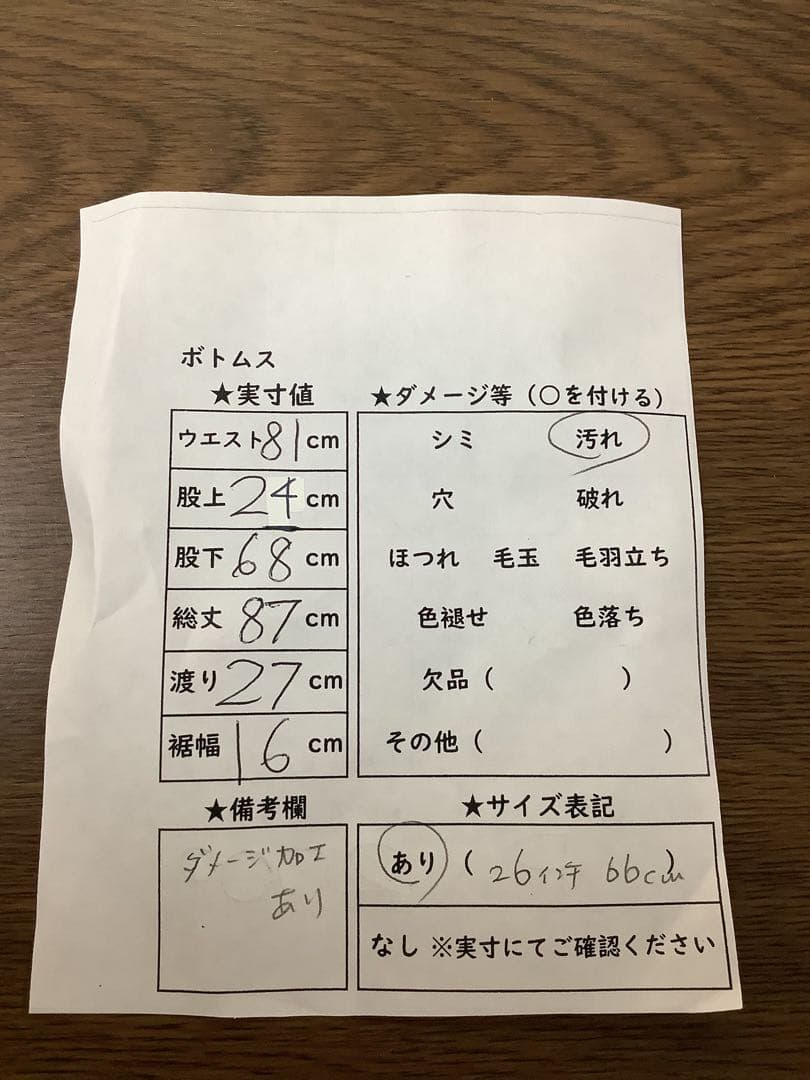 ボトムス
★実寸値
ウエスト81cm
股上24cm
股下68cm
総丈87cm
渡り27cm
裾幅16cm
★ダメージ等（○を付ける）
シミ 汚れ
穴 破れ
ほつれ 毛玉 毛羽立ち
色褪せ 色落ち
欠品（ ）
その他（ ）
★備考欄
ダメージ加工
あり
★サイズ表記
あり（26インチ 66cm）
なし ※実寸にてご確認ください